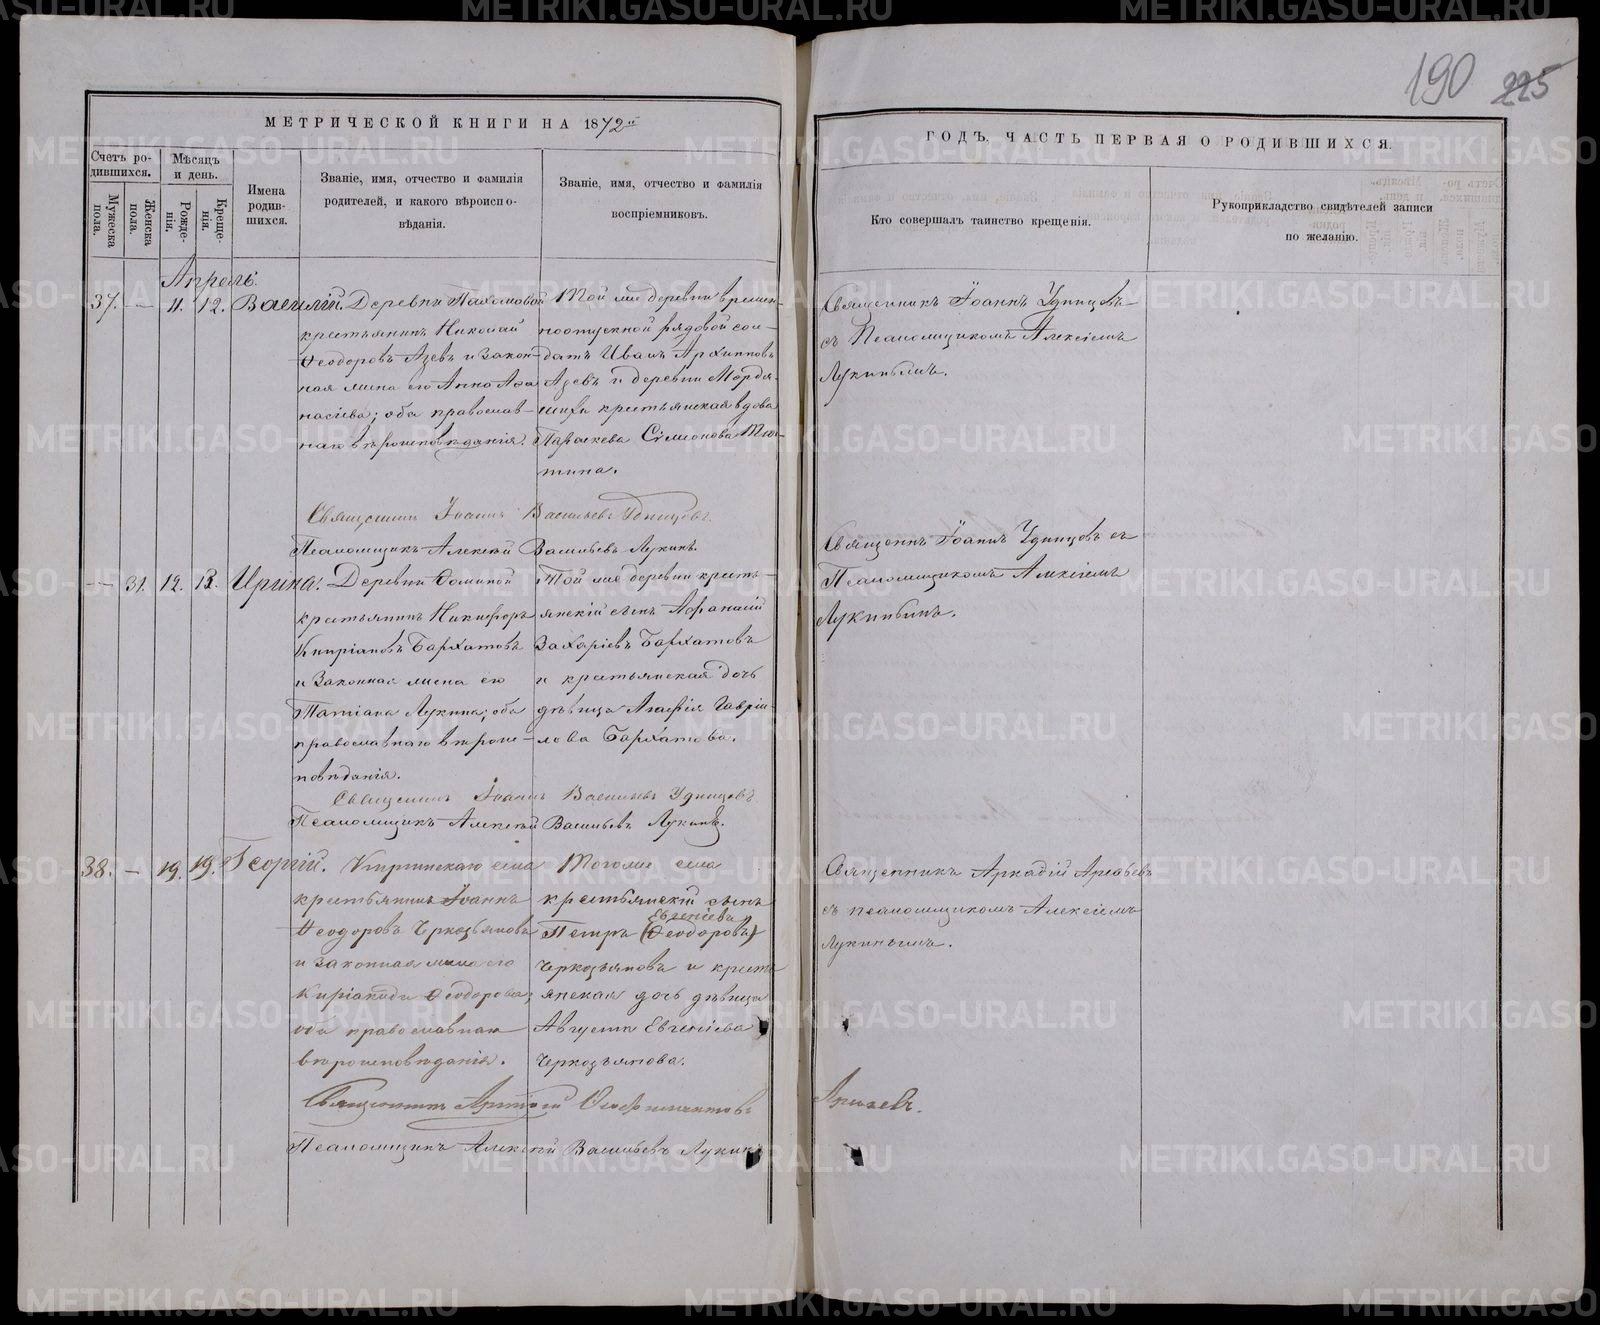 190 225
МЕТРИЧЕСКОЙ КНИГИ НА 1872й
ГОДЪ, ЧАСТЬ ПЕРВАЯ О РОДИВШИХСЯ.
Счетъ ро-
дившихся.
Мужеска
пола.
Женска
пола.
Мѣсяцъ
и день.
Рожде-
нія.
Креще-
нія.
Имена
родив-
шихся.
Званіе, имя, отчество и фамилія
родителей, и какого вѣроиспо-
вѣданія.
Званіе, имя, отчество и фамилія
воспріемниковъ.
Кто совершалъ таинство крещенія.
Рукоприкладство свидѣтелей записи
по желанію.
Апрель.
37. — 11. 12. Василій.
Деревни Пахомовой
крестьянинъ Николай
Ѳеодоровъ Азевъ и закон-
ная жена его Анна Аѳа-
насіева; оба православ-
наго вѣроисповѣданія.
Той же деревни времен-
ноотпускной рядовой сол-
датъ Иванъ Архипповъ
Азевъ и деревни Мордя-
шихи крестьянская вдова
Параскева Сімеонова Тю-
тина.
Священникъ Іоаннъ Удинцовъ
съ Псаломщикомъ Алексіемъ
Лукинымъ.
Священникъ Іоаннъ Васильевъ Удинцовъ.
Псаломщикъ Алексѣй Васильевъ Лукинъ.
— 31. 12. 13. Ирина.
Деревни Ѳоминой
крестьянинъ Никифоръ
Кипріановъ Бархатовъ
и законная жена его
Татіана Лукина; оба
православнаго вѣроис-
повѣданія.
Той же деревни кресть-
янскій сынъ Аѳанасій
Захаріевъ Бархатовъ
и крестьянская дочь
дѣвица Агафія Гаврiи-
лова Бархатова.
Священникъ Іоаннъ Удинцовъ съ
Псаломщикомъ Алексіемъ
Лукинымъ.
Священникъ Іоаннъ Васильевъ Удинцовъ
Псаломщикъ Алексѣй Васильевъ Лукинъ.
38. — 19. 19. Георгій.
Киргинскаго села
крестьянинъ Іоаннъ
Ѳеодоровъ Черкозьяновъ
и законная жена его
Киріакида Ѳеодорова;
оба православнаго
вѣроисповѣданія.
Того же села
крестьянскій сынъ
Евгеніевъ
Петръ (Ѳеодоровъ)
Черкозьяновъ и кресть-
янская дочь дѣвица
Августа Евгеніева
Черкозьянова.
Священникъ Аркадій Аргаевъ
съ псаломщикомъ Алексіемъ
Лукинымъ.
Священникъ
Псаломщикъ Алексѣй Васильевъ Лукинъ
METRIKI.GASO-URAL.RU